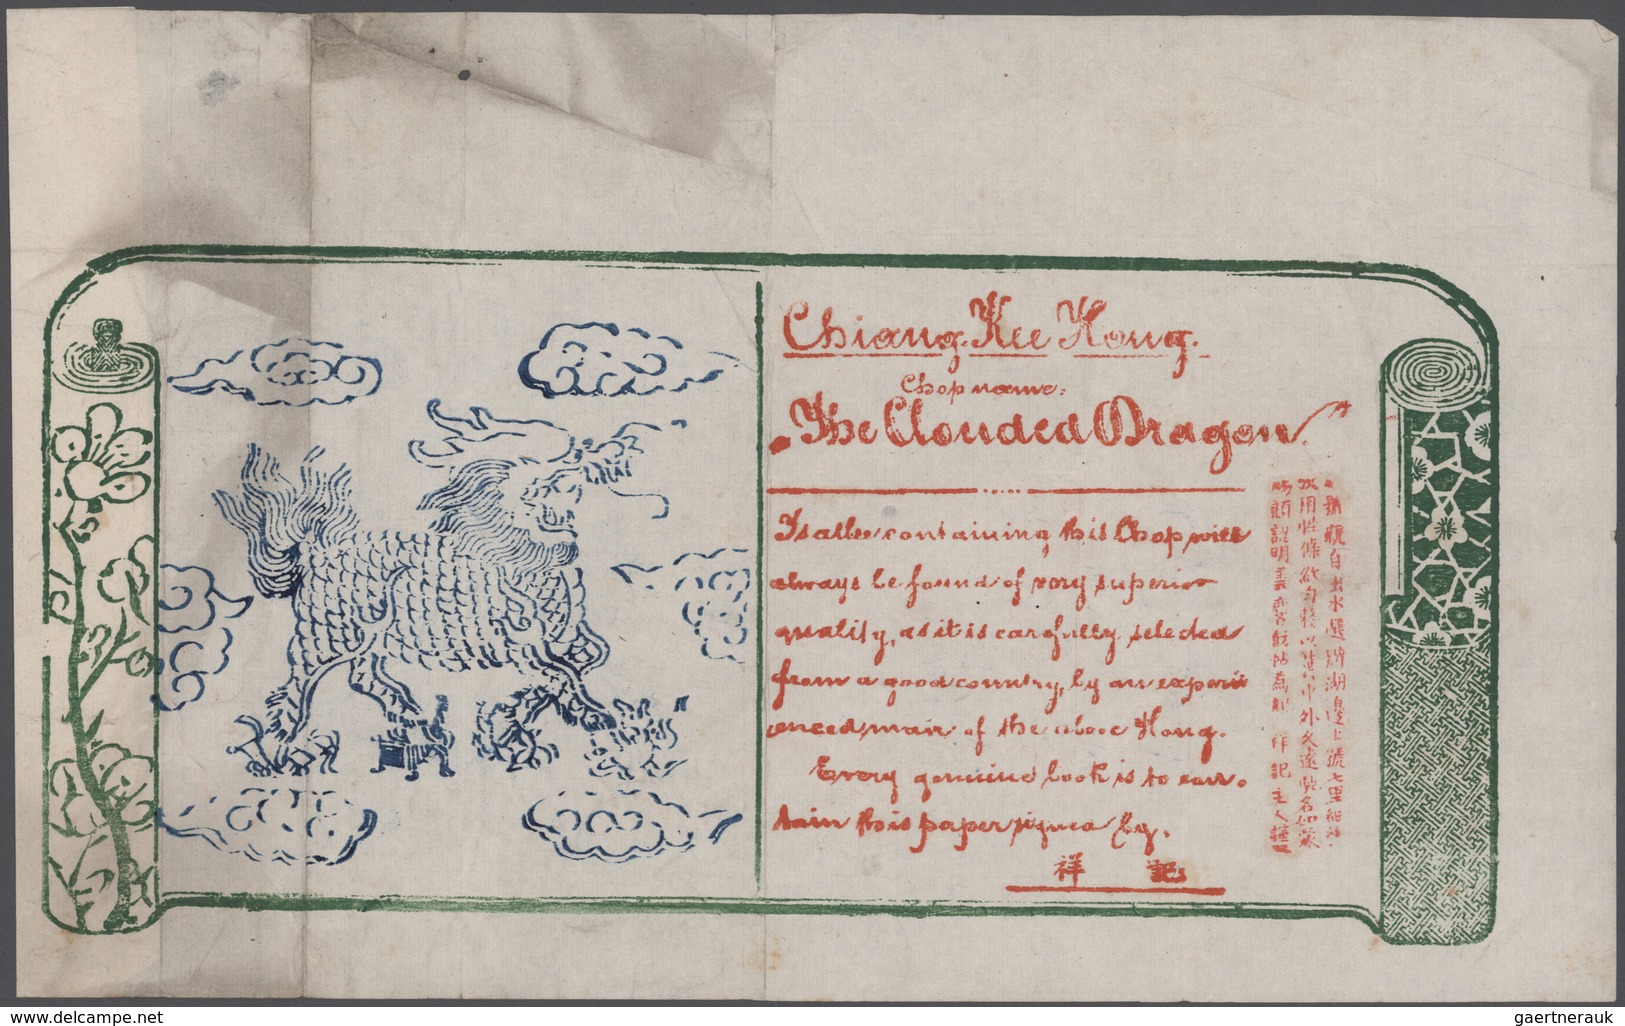 Chiang Kee Hong.
Chop name:
The Clouded Dragon.
Tsatlee containing this Chop will
always be found of very superior
quality, as it is carefully selected
from a good country, by an experi
enced man of the above Hong.
Every genuine book is to con-
tain this paper signed by.
祥 記
觀自出水選 湖 號七里
用 條 中外久遠馳名
顧認明 為 祥記主人謹
www.delcampe.net
gaertnerauk